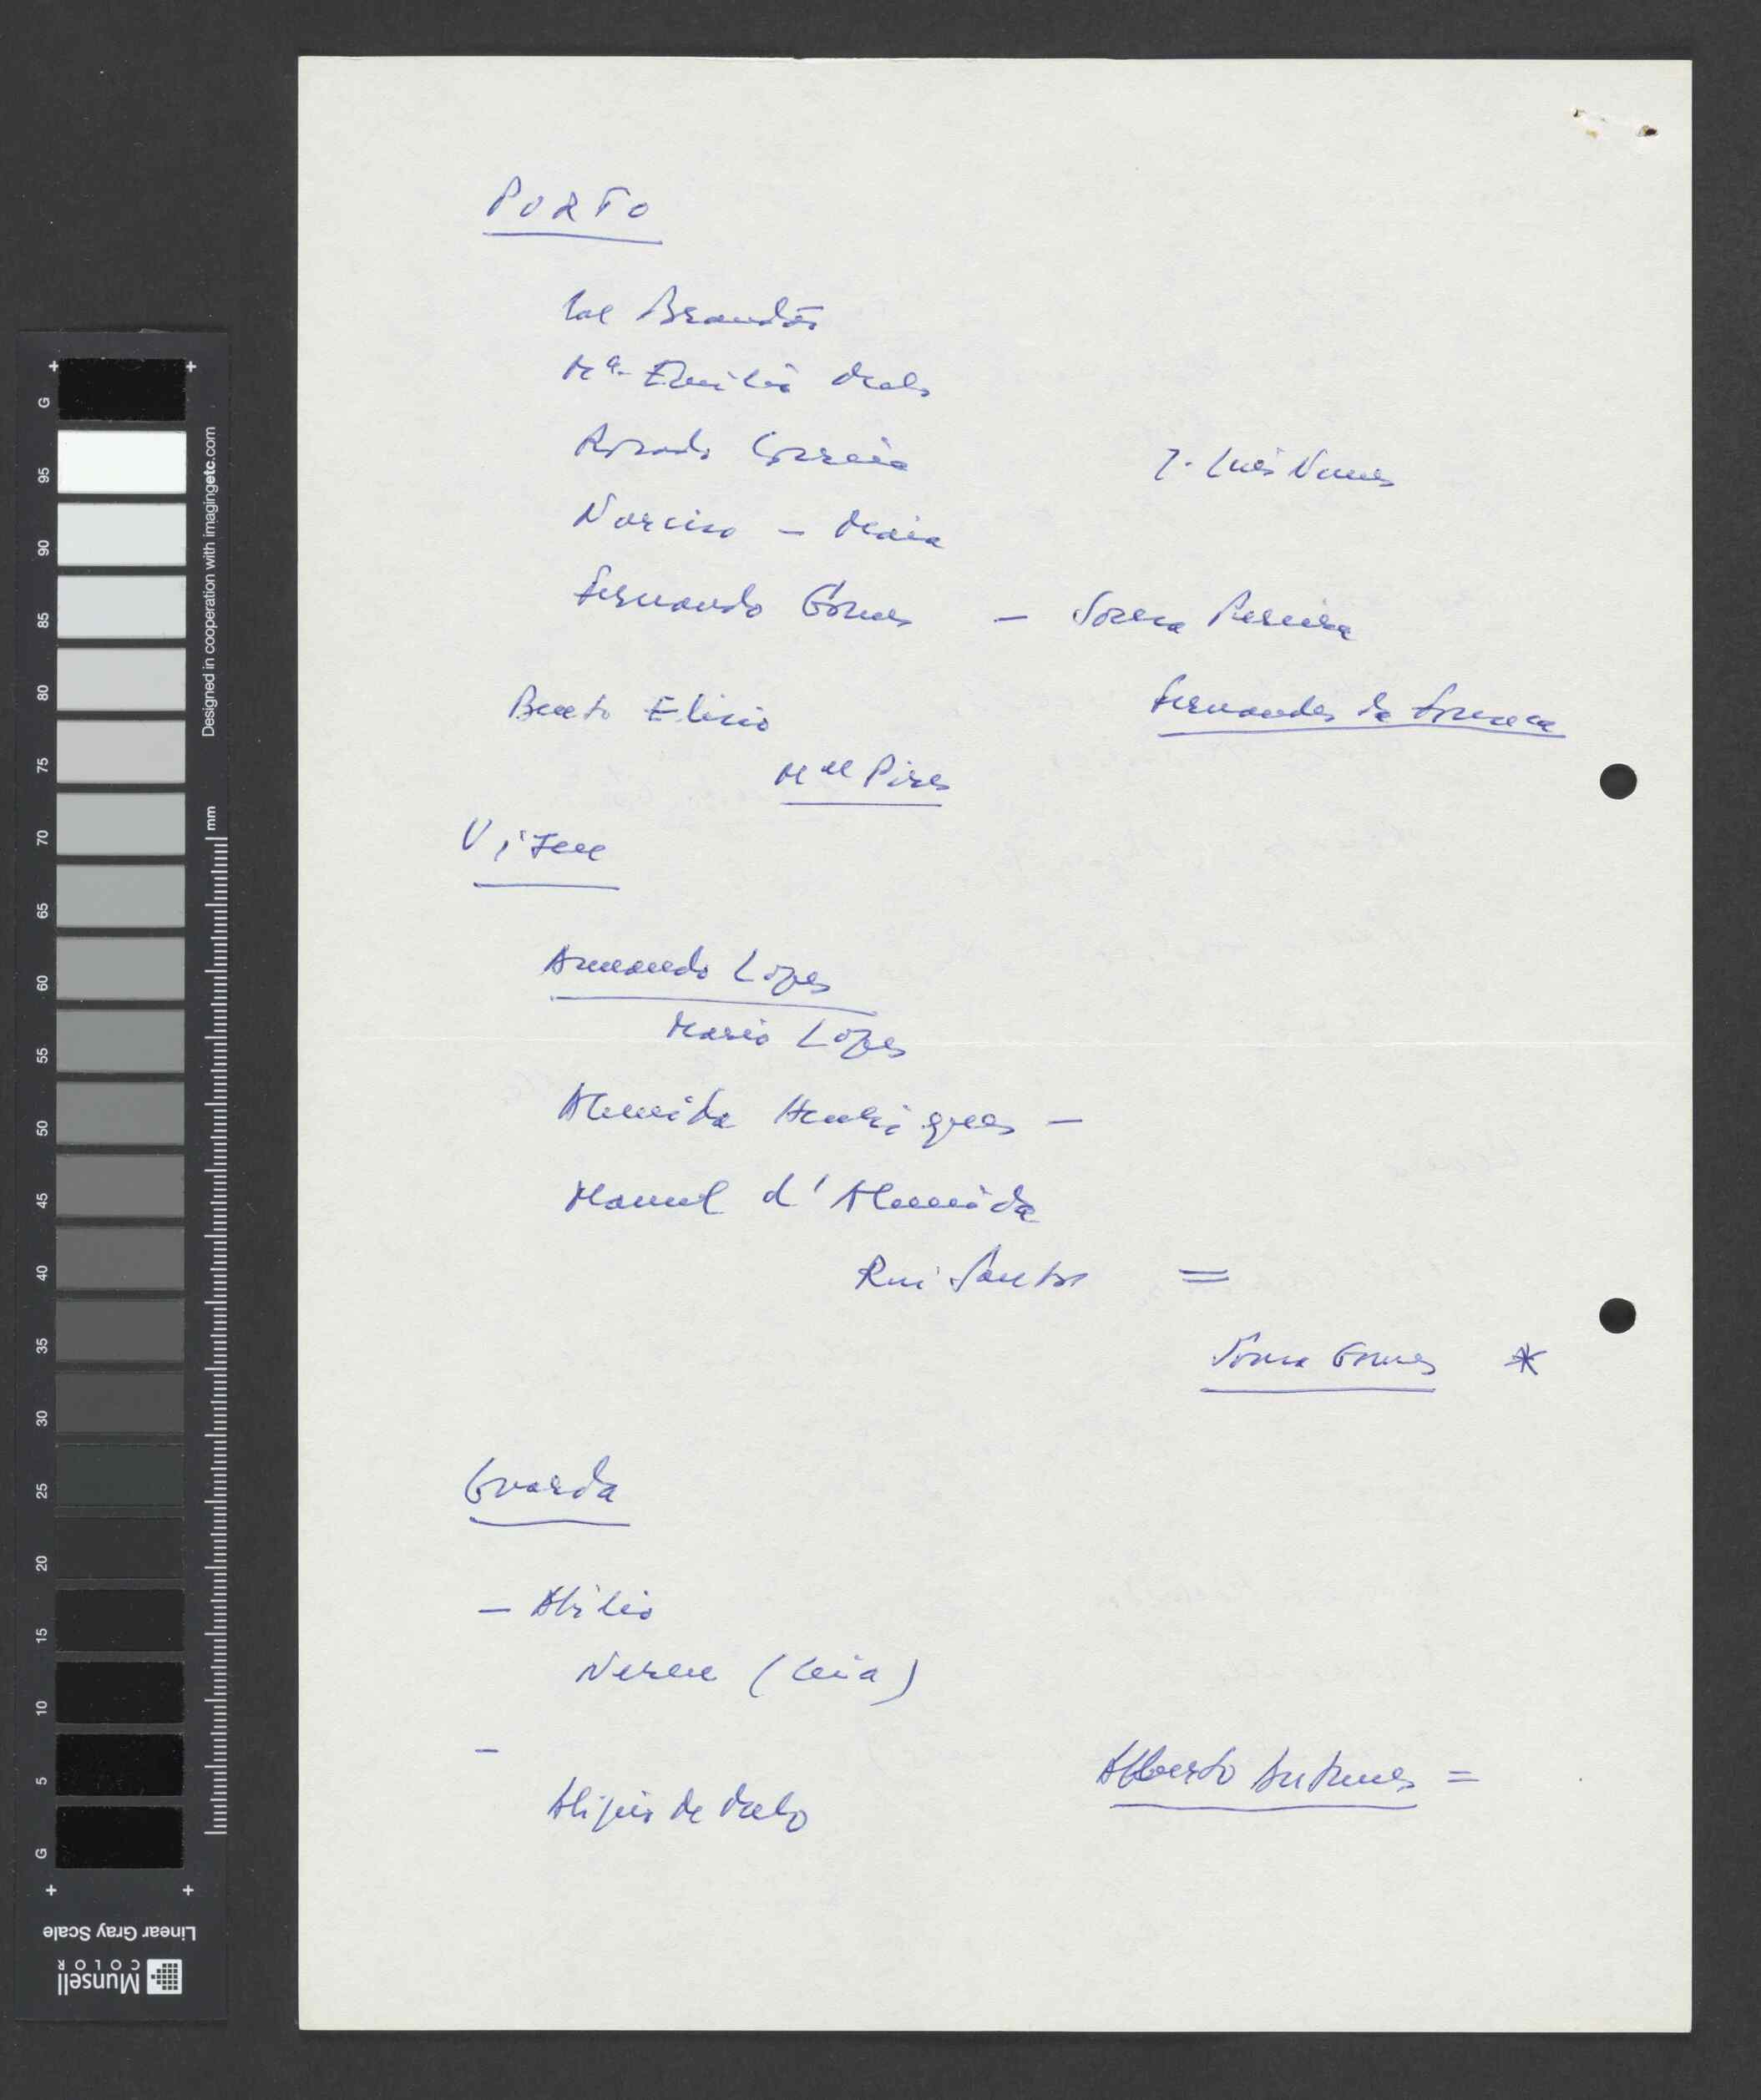 PORTO
Brandão
Mª. Emilia Melo
Rosado Correia
J. Luis Nunes
Narciso – Maia
Fernando Gomes – Sousa Pereira
Beato Elisio
Fernandes da Fonseca
Mel Pires
Viseu
Armando Lopes
Mario Lopes
Almeida Henriques –
Manuel d'Almeida
Rui Santos =
Sousa Gomes *
Guarda
– Abilio
(Ceia)
–
Alberto Antunes =
Alipio de Melo
G
95
90
85
80
75
70
65
60
55
50
45
40
35
30
25
20
15
10
5
G
mm
Designed in cooperation with imagingetc.com
Linear Gray Scale
Munsell
COLOR